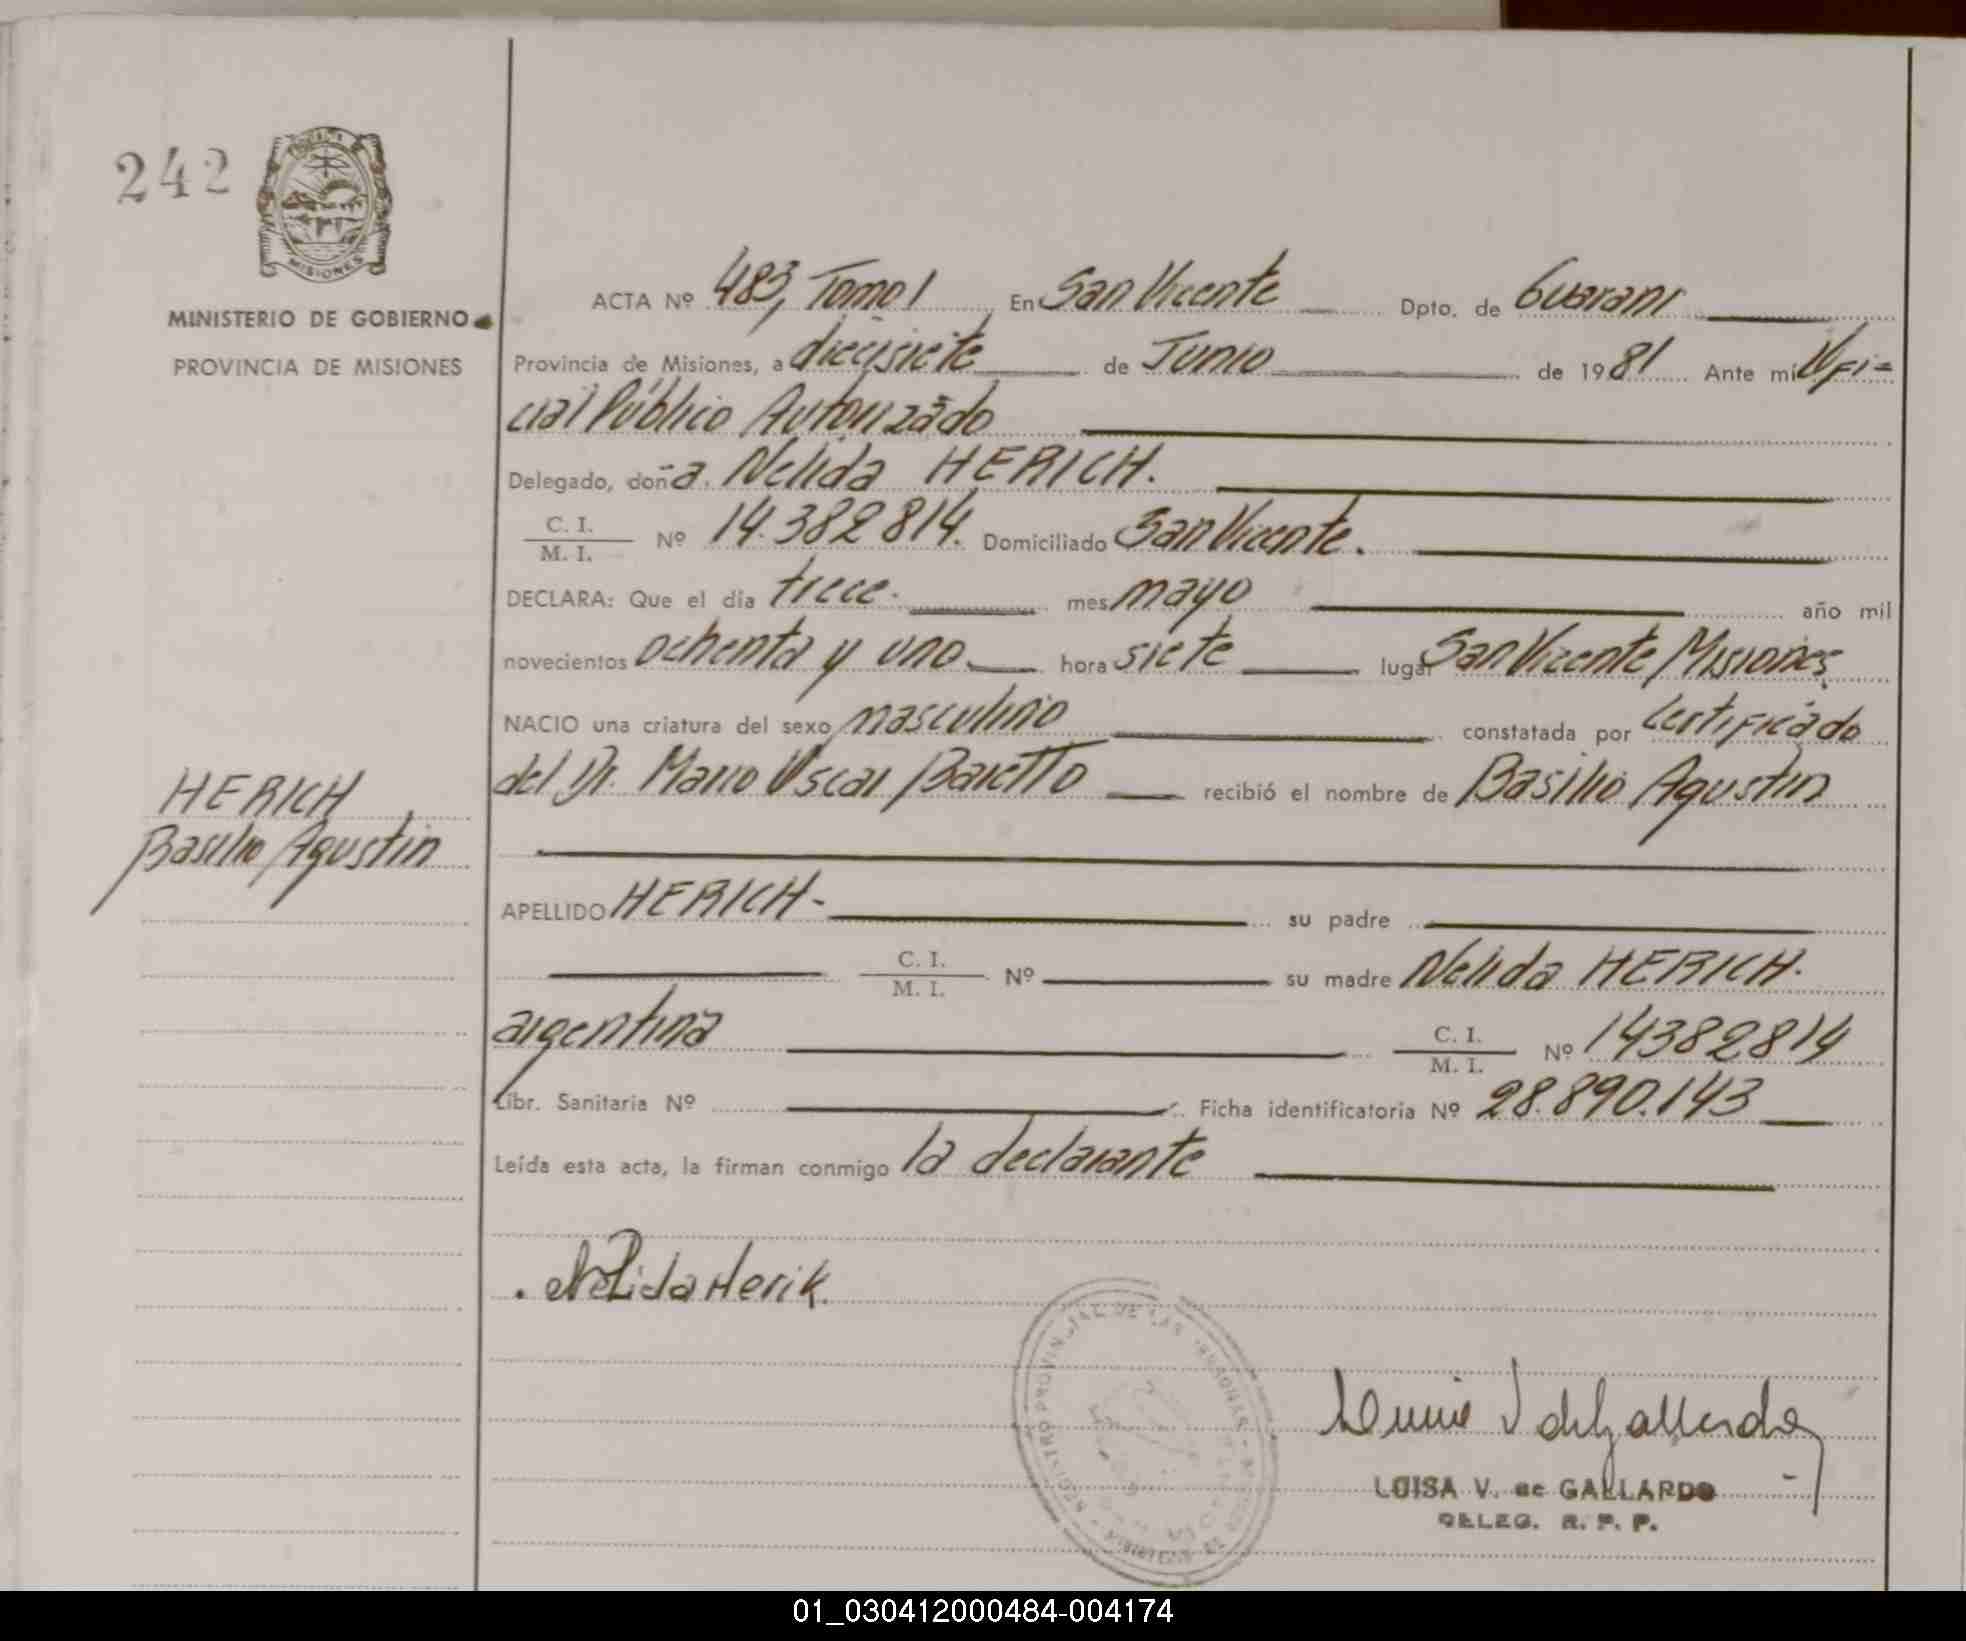 242
MISIONES
MINISTERIO DE GOBIERNO
PROVINCIA DE MISIONES
HERICH
Basilio Agustin
ACTA Nº 483, Tomo I En San Vicente Dpto. de Guarani
Provincia de Misiones, a diecisiete de Junio de 1981 Ante mi Ofi=
cial Público Autorizado
Delegado, doña. Nelida HERICH.
C. I.
M. I. Nº 14.382814. Domiciliado San Vicente.
DECLARA: Que el día trece. mes mayo año mil
novecientos ochenta y uno hora siete lugar San Vicente Misiones.
NACIO una criatura del sexo masculino constatada por Certificado
del Dr. Mario Oscar Baretto recibió el nombre de Basilio Agustin
APELLIDO HERICH- su padre
C. I.
M. I. Nº su madre Nelida HERICH.
argentina C. I.
M. I. Nº 14382814
Libr. Sanitaria Nº Ficha identificatoria Nº 28.890.143
Leída esta acta, la firman conmigo la declarante
Nelida Herik.
REGISTRO PROVINCIAL DE LAS PERSONAS
LUISA V. de GALLARDO
DELEG. R. P. P.
01_030412000484-004174